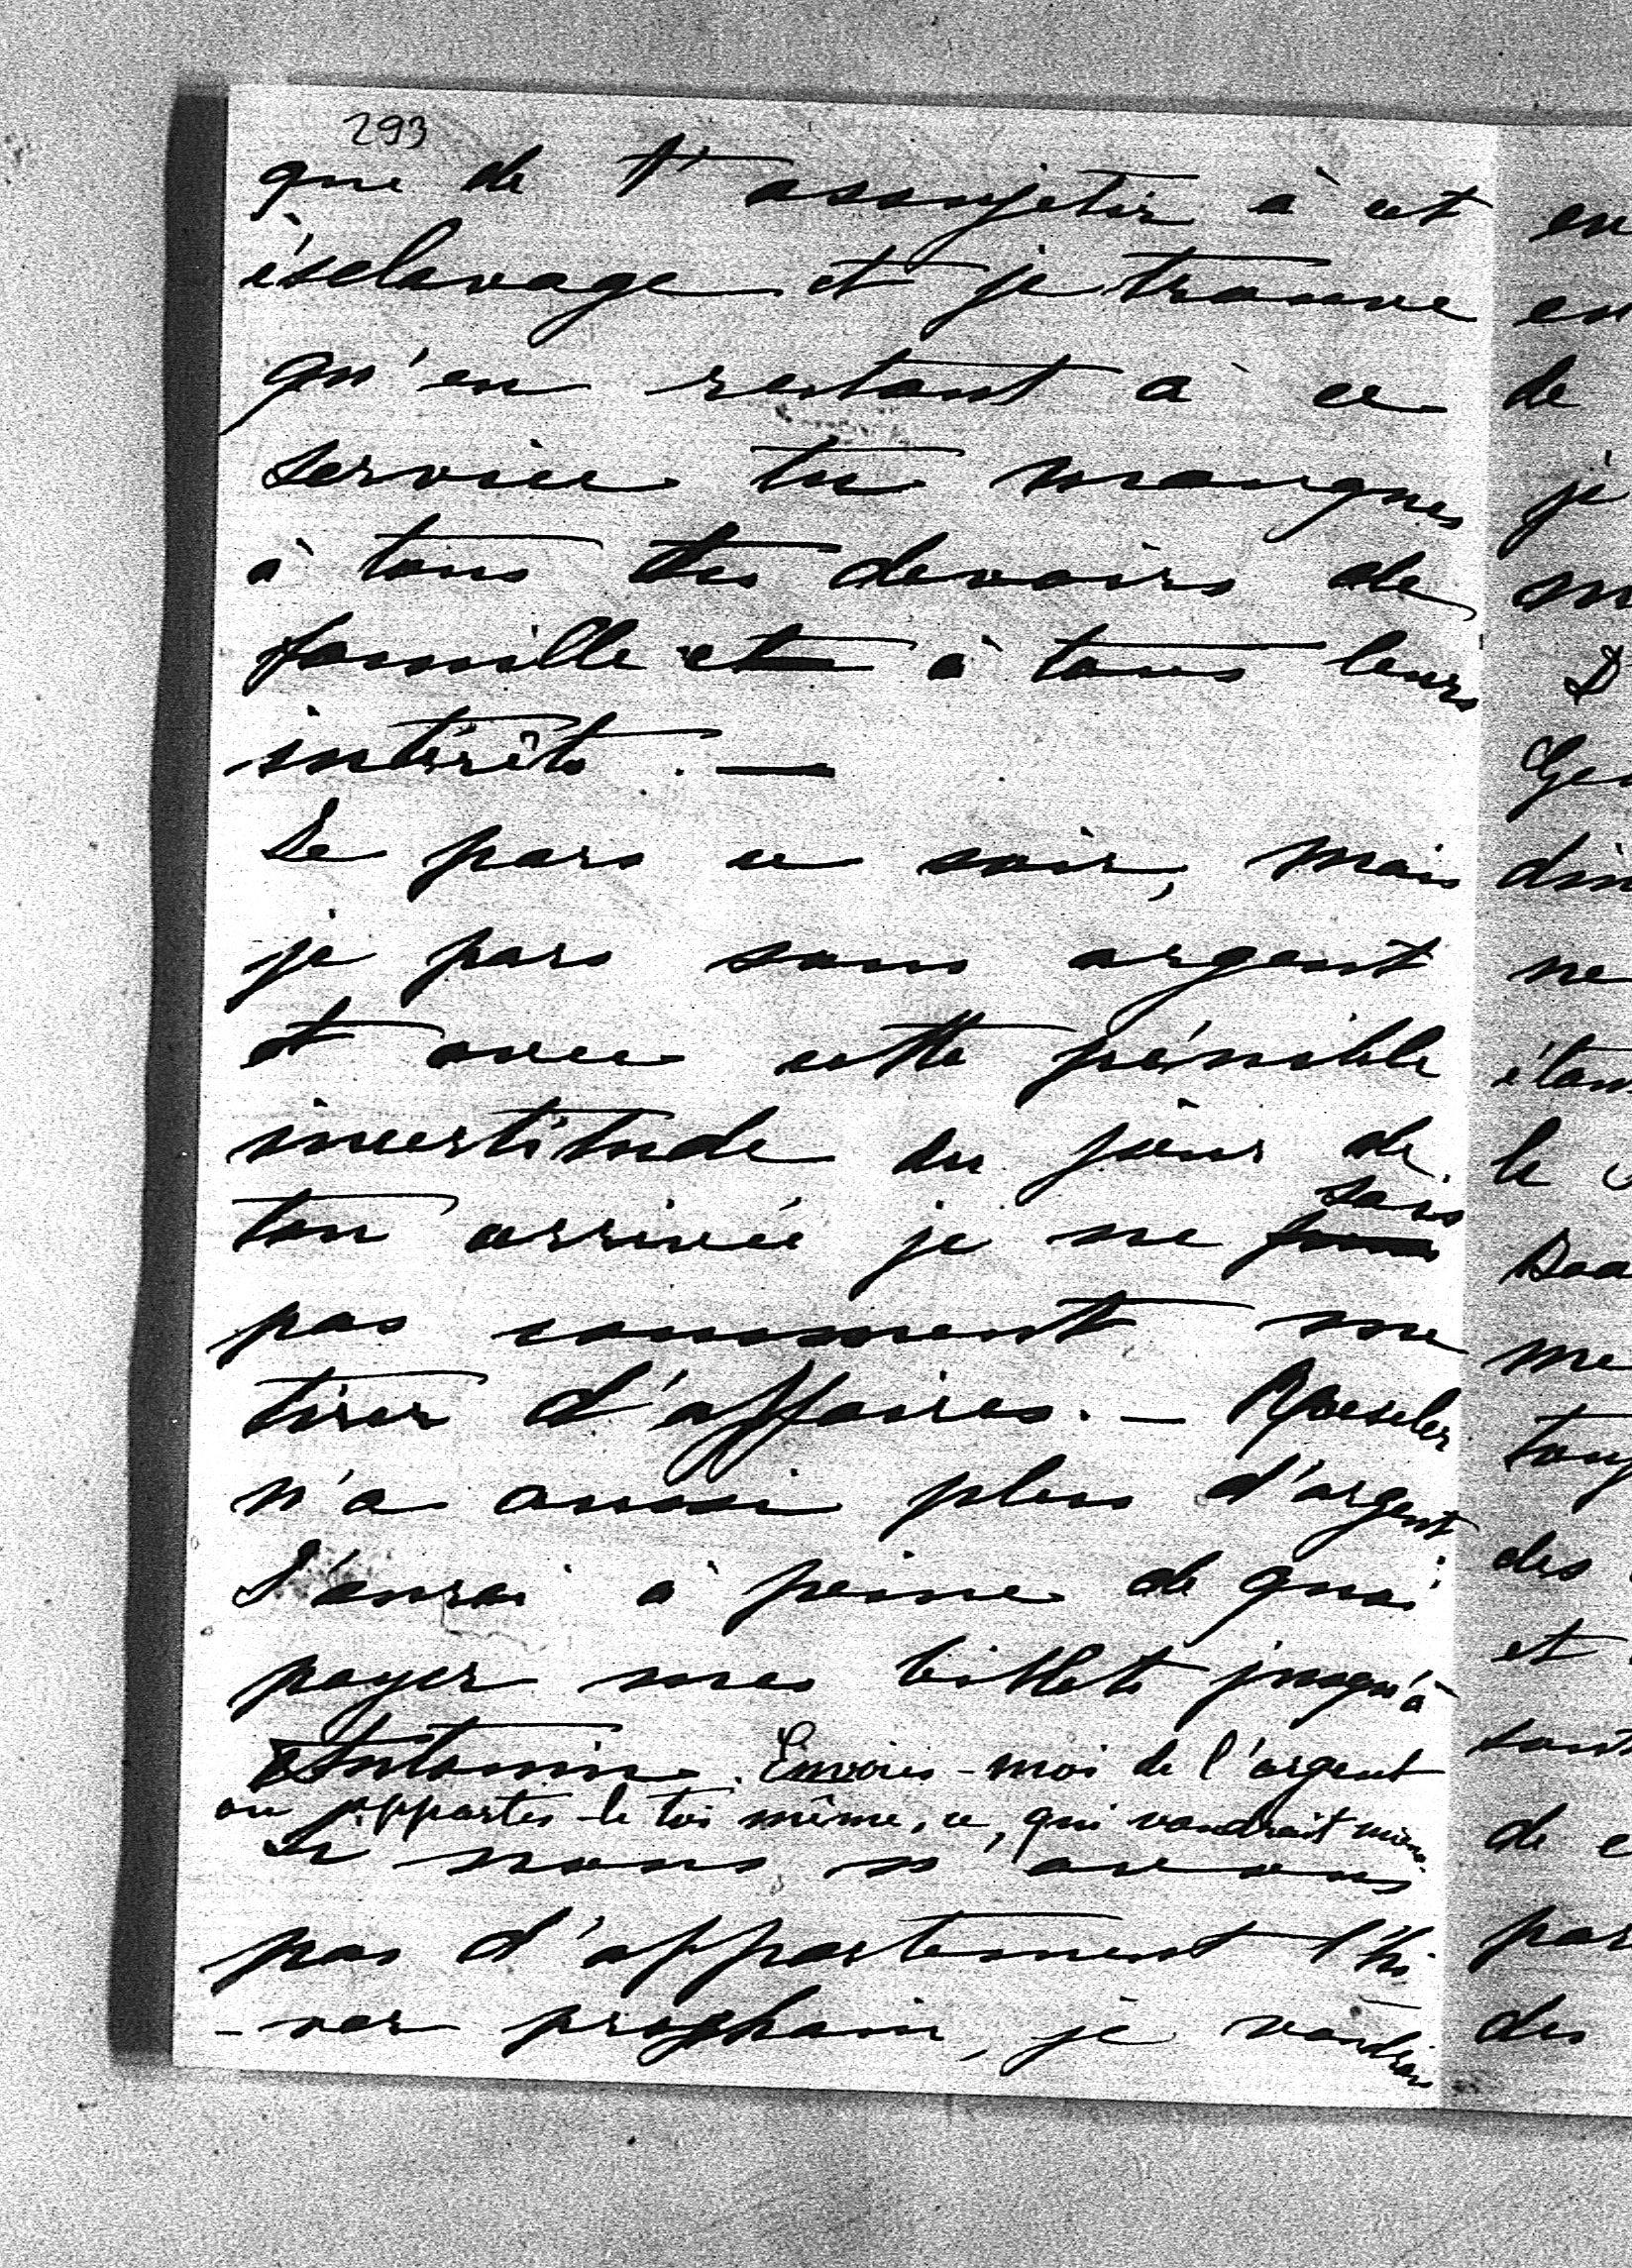 293
que de t'assujetir à cet
ésclavage et je trouve
qu'en restant à ce
service tu manques
à tous tes devoirs de
famille et à tous leurs
intérêts. —
Je pars ce soir, mais
je pars sans argent
et avec cette pénible
incertitude du jour de
sais
ton arrivée je ne
pas comment me
tirer d'affaires. — Roeseler
n'a aussi plus d'argent
J'aurai à peine de quoi
payer mes billets jusqu'à
Antonin. Envoies-moi de l'argent
ou apportes-le toi même, ce, qui vaudrait mieux.
Si nous n'avons
pas d'appartement l'hi
-ver prochain, je voudrais
en
en
de
je
D'
ne
le
me
des
et
de
des